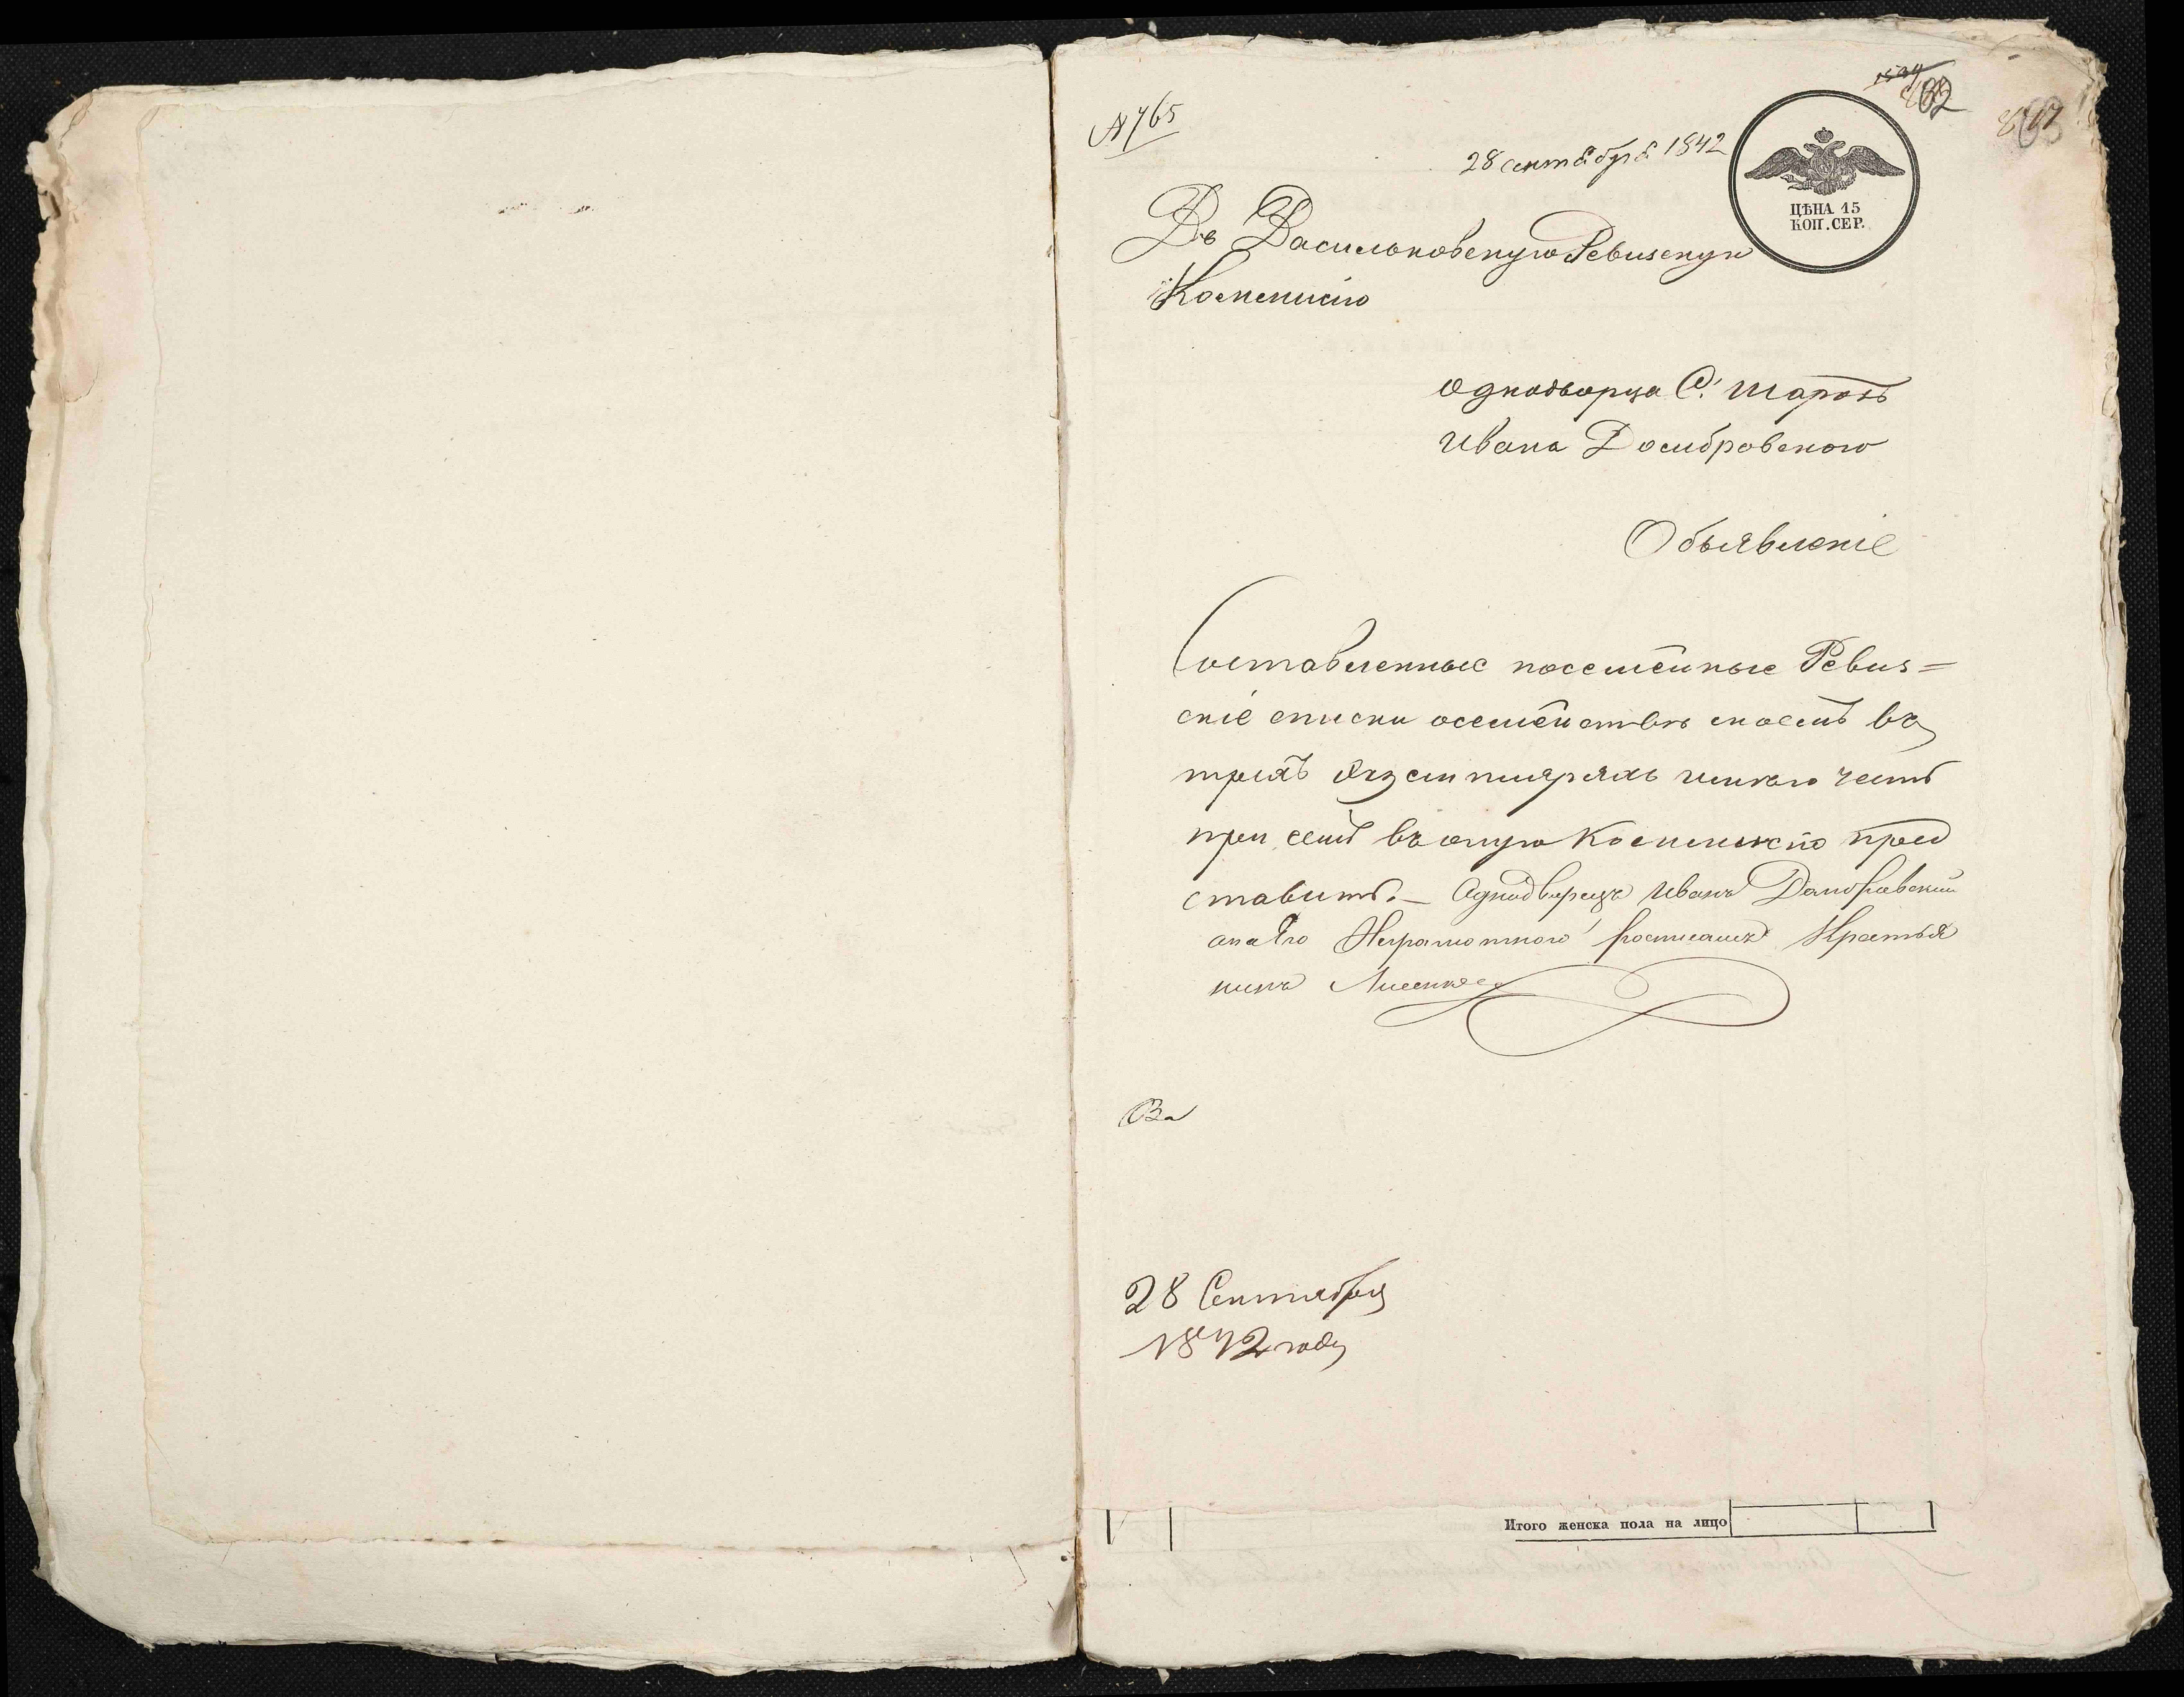 № 765
28 сентября 1842
82
ЦѢНА 15
КОП. СЕР.
Въ Васильковскую Ревизскую
Коммисію
Однодворца С. 
Ивана Домбровского
Объявленіе
Составленные посемейные Ревиз=
скіе списки осемействѣ моемъ въ
трехъ Экземплярахъ имѣю честь
при семъ въ оную Коммисію пред
ставить. — Однодворецъ Иванъ Домбровский
анаЕго Неграмотного росписался Крестья
нинъ
28 Сентября
1842 года
Итого женска пола на лицо